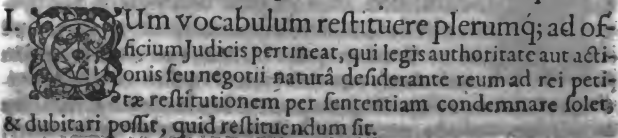 I. CUm vocabulum reſtituere plerumq́; ad of-
ficium Judicis pertineat, qui legis authoritate aut acti-
onis ſeu negotii naturâ deſiderante reum ad rei peti-
tæ reſtitutionem per ſententiam condemnare ſolet,
& dubitari poſſit, quid reſtituendum ſit.